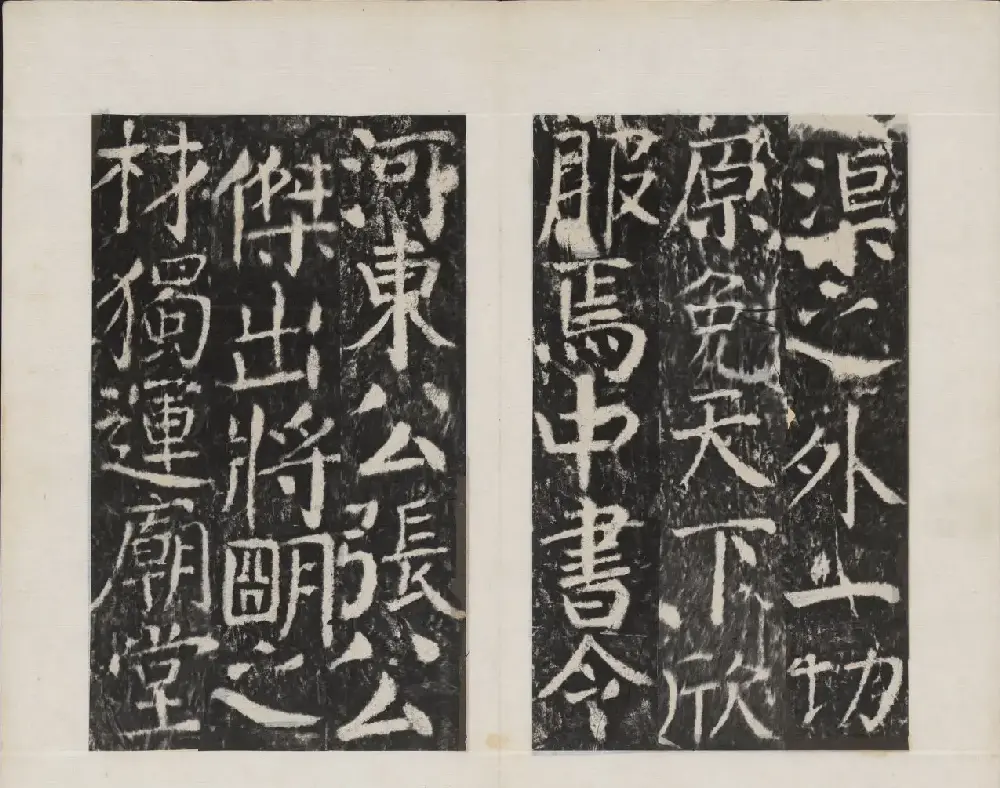 渠之外上切
原免天下欣
服焉中書令
河東公張公
傑出將朙之
材獨運廟堂